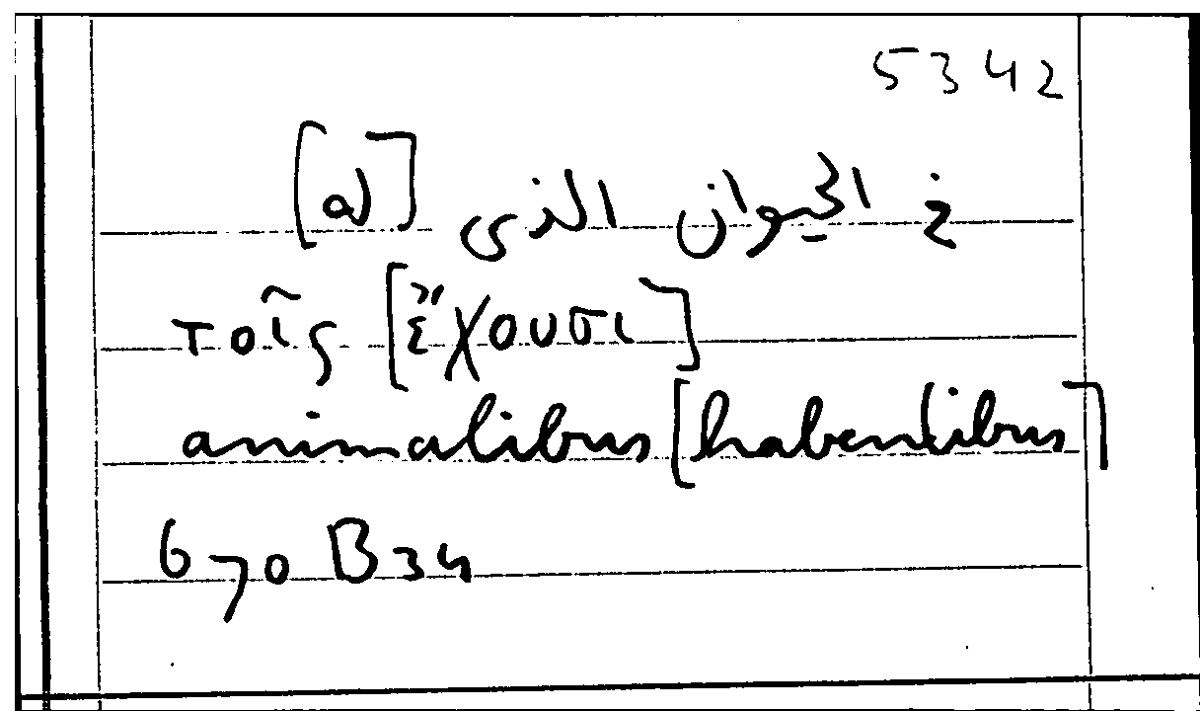 5342
في الحيوان الذى [له]
τοῖς [ἔχουσι]
animalibus [habentibus]
670 B 34